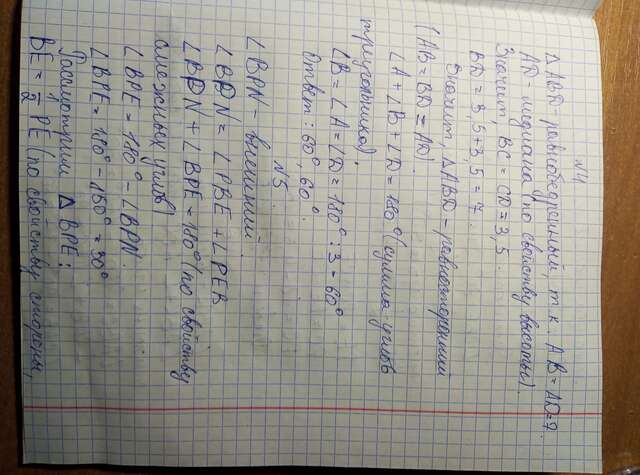 №4
△ABD-равнобедренный, т.к. AB = AD=7.
AD-медиана (по свойству высоты).
Значит BC = CD = 3,5.
BD = 3,5+3,5 = 7.
Значит, △ABD - равносторонний
(AB = BD = AD).
∠A + ∠B + ∠D = 180° (сумма углов
треугольника),
∠B = ∠A = ∠D = 180° : 3 = 60°
Ответ: 60°, 60°.
№5.
∠BPN - внешний
∠BPN = ∠PBE + ∠PEB
∠BPN + ∠BPE = 180° (по свойству
смежных углов)
∠BPE = 180° - ∠BPN.
∠BPE = 180° - 150° = 30°
Рассмотрим △ BPE:
BE = 1/2 PE (по свойству стороны,